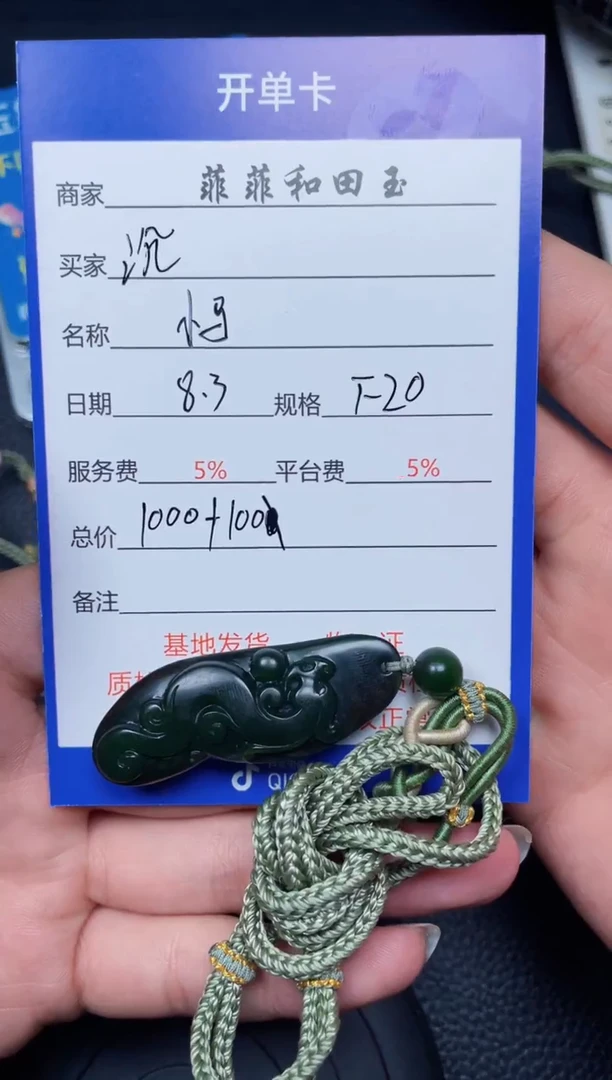 开单卡
商家 菲菲和田玉
买家 沉
名称
日期 8.3 规格 F-20
服务费 5% 平台费 5%
总价 1000+100
备注
基地发货 证
质
正